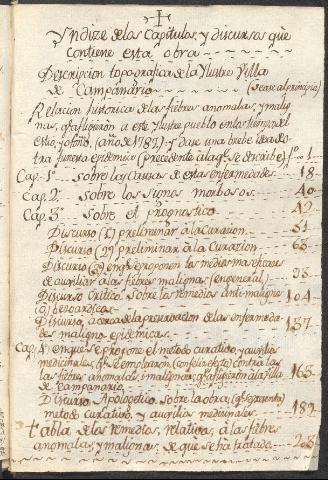 Yndize de los Capitulos, y discursos que
contiene esta obra
Descripcion topografica de la Ylustre Villa
de Campanario (vease al principio)
Relacion historica de las fiebres anomalas, y malig-
nas, q afligieron a este Ylustre pueblo en los tiempos del
estio, y otoño, (año de 1787) y da una breve idea de o
tra funesta epidemia (precedente a la q se describe) fº 1
Cap. 1º Sobre las causas de estas enfermedades 18
Cap. 2º Sobre los signos morbosos 40
Cap. 3º Sobre el prognostico 42
Discurso (1º) preliminar a la curacion 51
Discurso (2º) preliminar a la curacion 63
Discurso (3º) en q se proponen los medios mas eficaces
de auxiliar a las fiebres malignas (en general)
Discurso Critico sobre los remedios anti-malignos
o bezoardicos 104
Discurso, acerca de la preservacion de las enfermeda-
des maligno epidemicas 137
Cap. 4º en que se propone el metodo curativo, y auxilios
medicinales, q se emplearon (con feliz exito) contra
las fiebres anomalas, i malignas, q afligieron a la villa
de Campanario 165
Discurso Apologetico sobre la obra, (q se presenta)
metodo curativo, y auxilios medicinales 182
Tabla de los remedios, relativa, a las fiebres
anomalas, y malignas, de que se ha tratado